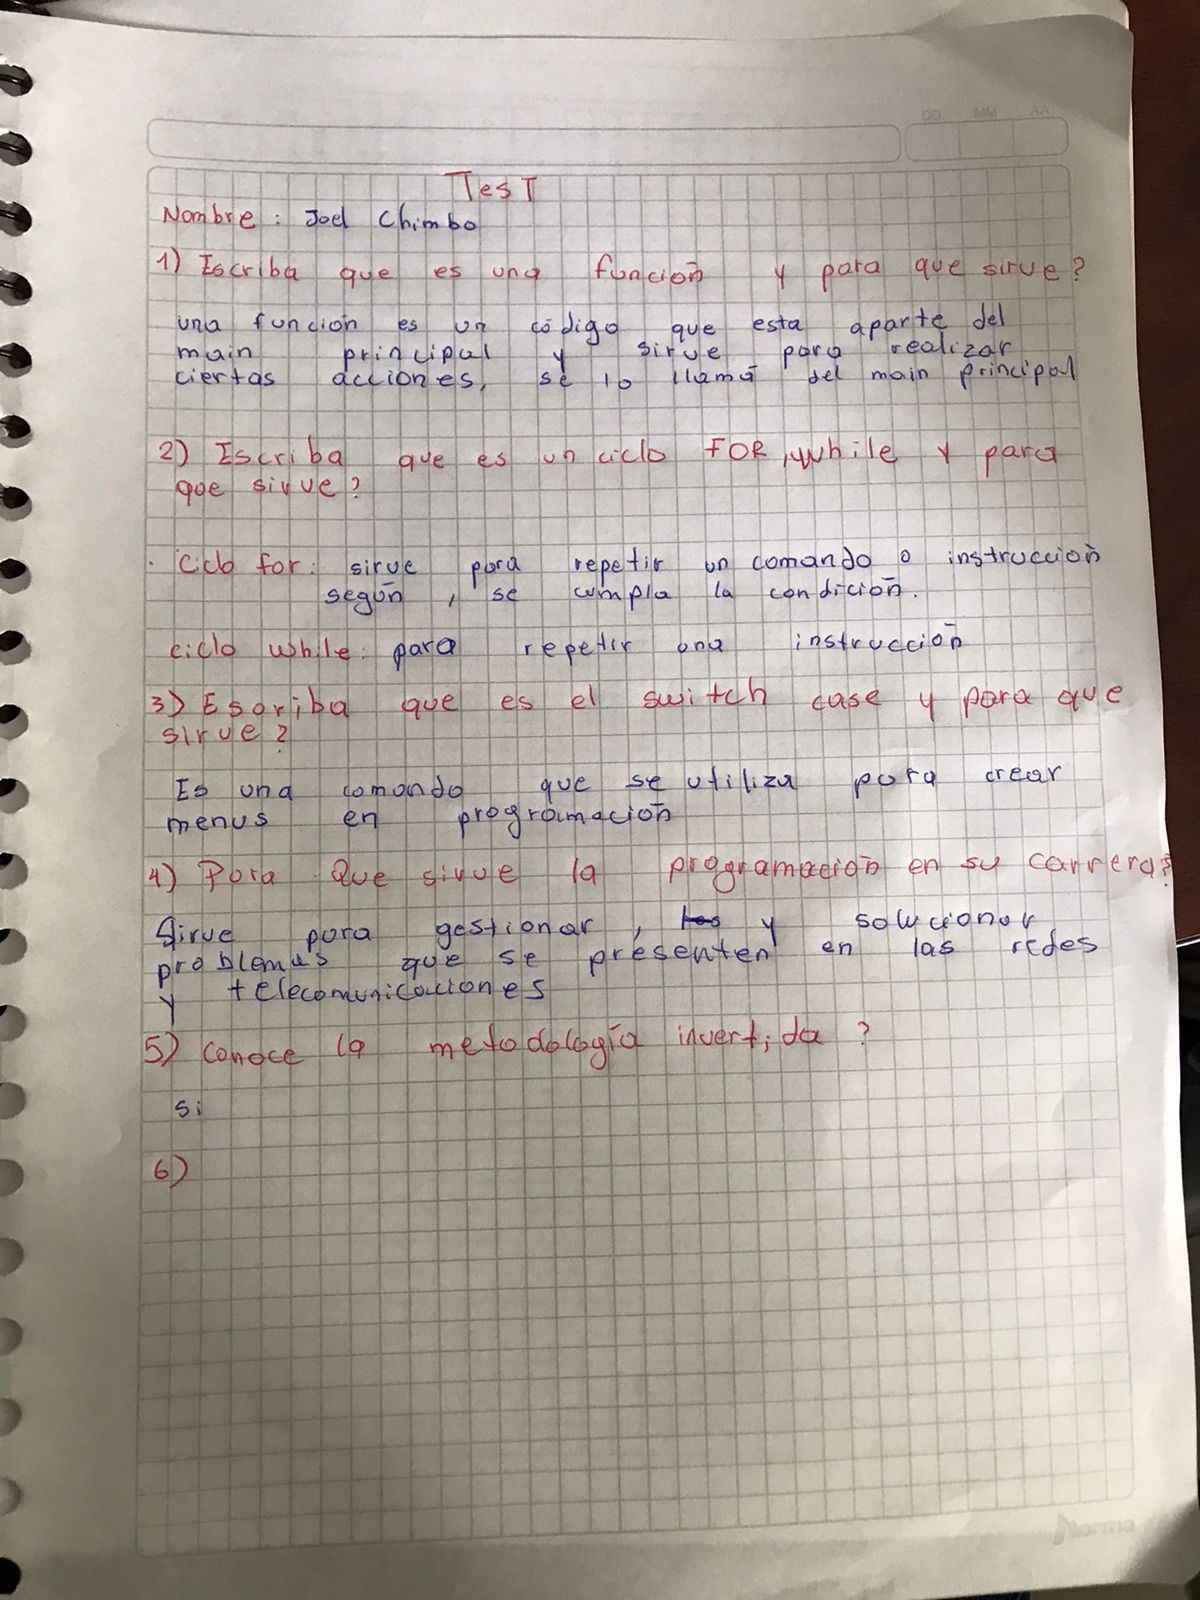 DD MM AA
Test
Nombre : Joel Chimbo
1) Escriba que es una función y para que sirve?
una función es un código que esta aparte del
main principal y sirve para realizar
ciertas acciones, se lo llama del main principal
2) Escriba que es un ciclo FOR, while y para
que sirve?
. Ciclo for: sirve para repetir un comando o instrucción
según , se cumpla la condición.
ciclo while: para repetir una instrucción
3) Escriba que es el switch case y para que
sirve?
Es una comando que se utiliza para crear
menus en programación
4) Para Que sirve la programación en su carrera?
Sirve para gestionar , los y solucionar
problemas que se presenten en las redes
y telecomunicaciones
5) Conoce la metodología invertida ?
si
6)
Norma